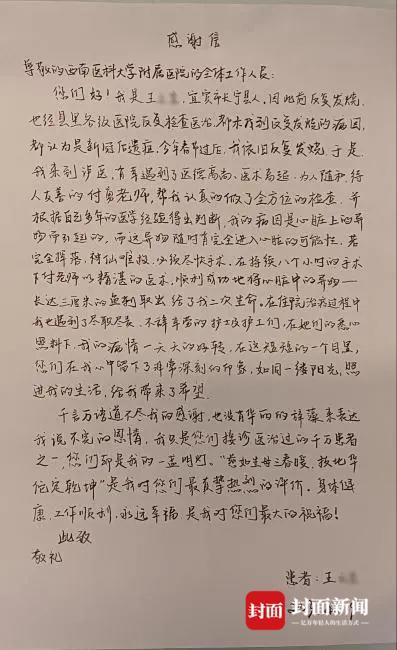 感谢信
尊敬的西南医科大学附属医院的全体工作人员：
您们好！我是王，宜宾市长宁县人，因此前反复发烧，
也经县里各级医院反复检查医治，都未找到反复发烧的病因，
都认为是新冠后遗症，今年春节过后，我依旧反复发烧，于是，
我来到泸医，有幸遇到了医德高尚、医术高超、为人随和、待
人友善的付勇老师，帮我认真的做了全方位的检查，并
根据自己多年的医学经验得出判断，我的病因是心脏上的异
物而引起的，而这异物随时有完全进入心脏的可能性，若
完全掉落，神仙难救，必须尽快手术，在持续八个小时的手术
下付老师以精湛的医术，顺利成功地将心脏中的异物——
长达三厘米的鱼刺取出，给了我二次生命。在住院治疗过程中
我也遇到了尽职尽责、不辞辛劳的护士及护工们，在她们的悉心
照料下，我的病情一天天的好转，在这短短的一个月里，
您们在我心中留下了非常深刻的印象，如同一缕阳光，照
进我的生活，给我带来了希望。
千言万语道不尽我的感谢，也没有华丽的辞藻来表达
我说不完的恩情，我只是您们接诊医治过的千万患者
之一，您们却是我的一盏明灯。“慈如生母三春暖，技地华
佗定乾坤”是我对您们最真挚热烈的评价，身体健
康，工作顺利，永远幸福是我对您们最大的祝福！
此致
敬礼
患者：王
封面 封面新闻
亿万年轻人的生活方式